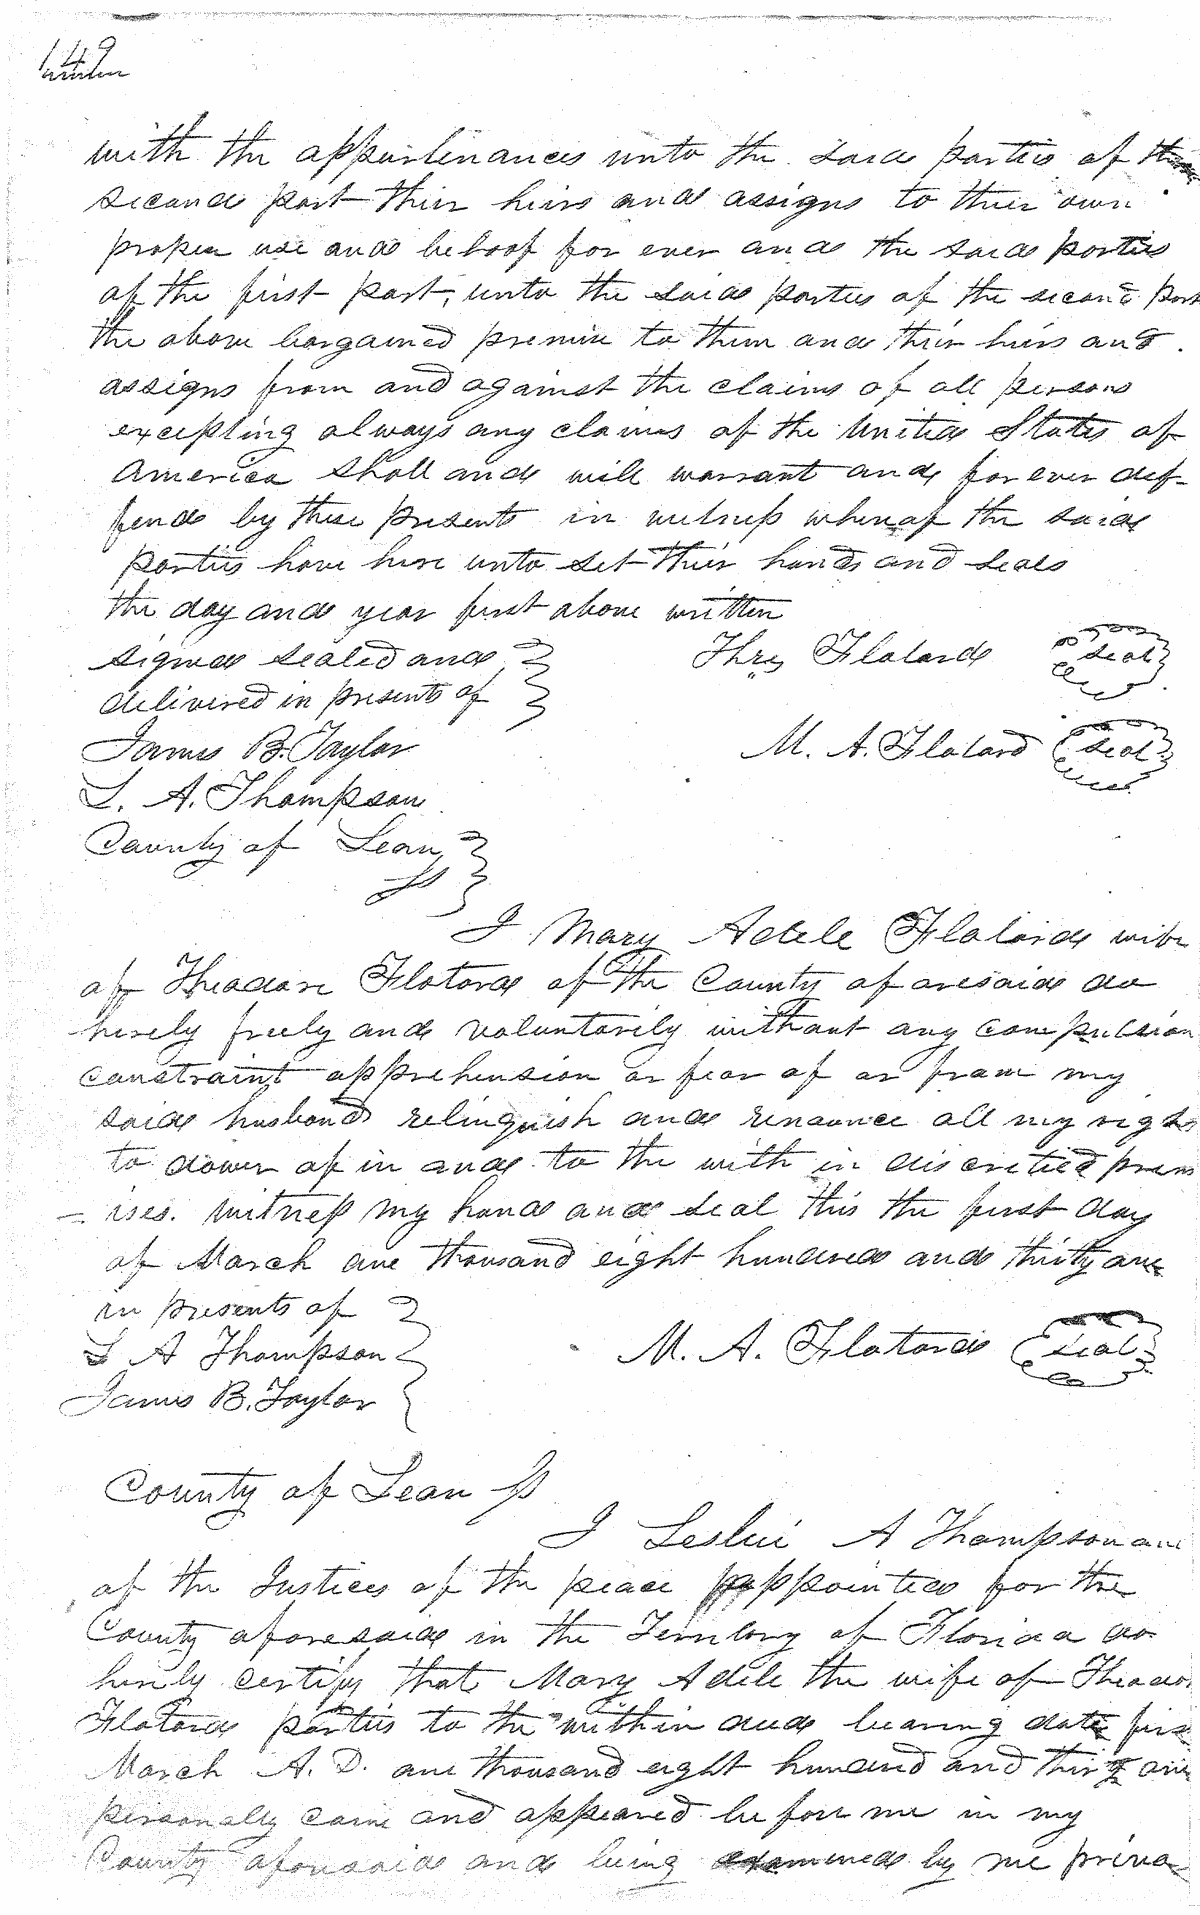 149
with the appurtinances unto the said parties of the
second part thier hiers and assigns to thier own
proper use and behoof for ever and the said parties
of the first part, unto the said parties of the second part
the above bargained premise to them and thier hiers and
assigns from and against the claims of all persons
excepting always any claims of the United States of
America shall and will warrant and forever def-
fend by these presents in witness whereof the said
parties have here unto set thier hands and seals
the day and year first above written
signed sealed and
delivered in presents of
Theo Flotard seal
James B. Taylor
M. A. Flotard seal
L. A. Thompson
County of Leon
ss
I Mary Adele Flotard wife
of Theodore Flotard of the County aforesaid do
herely freely and voluntarily without any compulsion
constraint apprehension or fear of or from my
said husband relinquish and renounce all my right
to dower of in and to the with in discretied prem
= ises. Witness my hand and seal this the first day
of March one thousand eight hundred and thirty one
in presents of
L A Thompson
M. A. Flotard seal
James B. Taylor
County of Leon ss
I Leslie A Thompson one
of the Justices of the peace appointed for the
County aforesaid in the Territory of Florida do
herely certify that Mary Adele the wife of Theodor
Flotard parties to the within deed bearing date firs
March A. D. one thousand eight hundred and thirty one
personally came and appeared before me in my
County aforesaid and being examined by me priva